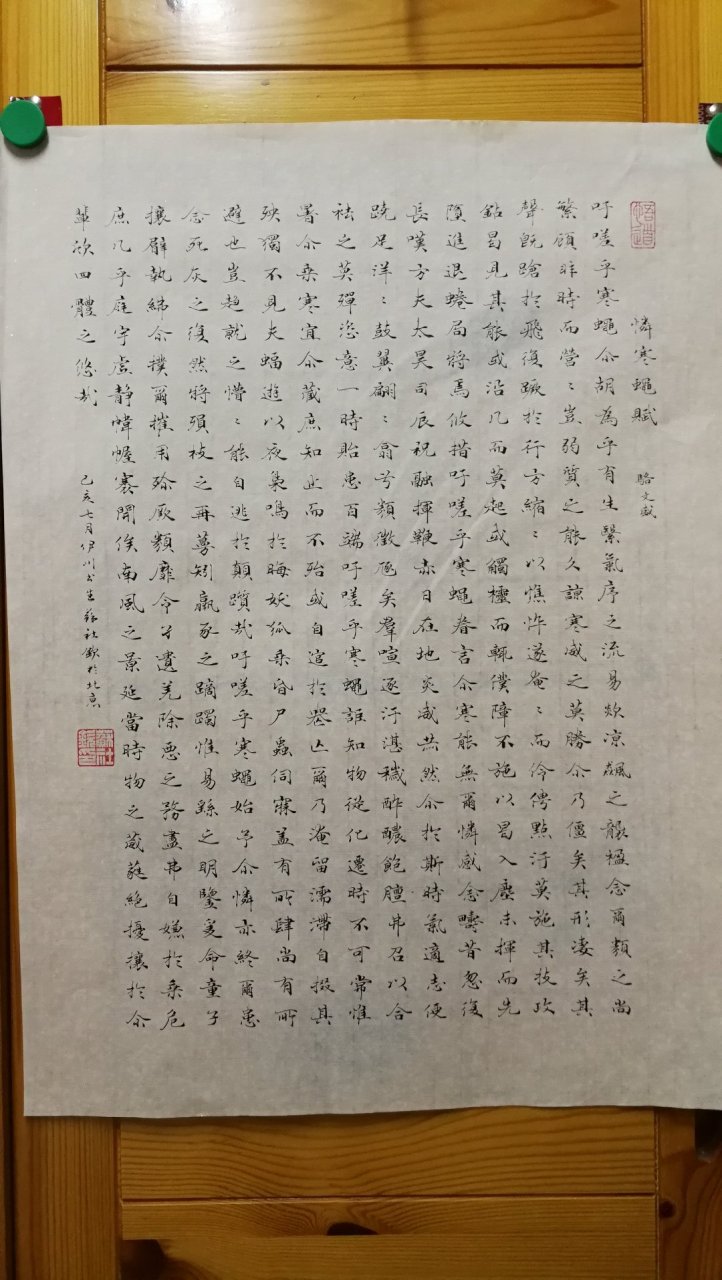 悟道
憐寒蠅賦 駱文盛
吁嗟乎寒蠅尒胡為乎有生繫氣序之流易欻凉飆之襲楹念爾類之尚
繁顧昨時而營〻豈弱質之能久諒寒威之莫勝尒乃僵矣其形淒矣其
聲既蹌於飛復蹶於行方縮〻以憔悴遂奄〻而伶俜點汙莫施其技攻
鉆曷見其能或沿几而莫起或觸櫺而輒僕障不施以曷入麈未揮而先
墮進退蜷局將焉攸措吁嗟乎寒蠅眷言尒寒能無爾憐感念疇昔忽復
長嘆方夫太昊司辰祝融揮鞭赤日在地炎威共然尒於斯時氣適志便
跂足洋〻鼓翼翩〻翕兮類徵爬矣羣喧逐汙湛穢酣醲飽膻弗召以合
祛之莫殫恣意一時貽患百端吁嗟乎寒蠅誰知物從化遷時不可常惟
暑尒乘寒宜尒藏庶知止而不殆或自逭於罄亡爾乃淹留濡滯自掇其
殃獨不見夫蝠遊以夜梟鳴於晦妖狐乘昏尸蟲伺寐蓋有所肆尚有所
避也豈趨就之懵〻能自逃於顛躓哉吁嗟乎寒蠅始予尒憐亦終爾患
念死灰之復然將殞枝之再蔓矧羸豕之蹢躅惟易繇之明鑒爰命童子
攘臂執締尒撲爾摧用殄厥類靡令孑遺羌除惡之務盡弗自嫌於乘危
庶几乎庭宇虛靜幃幄褰開俟南風之景延當時物之葳蕤絕擾攘於尒
輩欣四體之悠哉
己亥七月伊川書生蘇社欽於北京